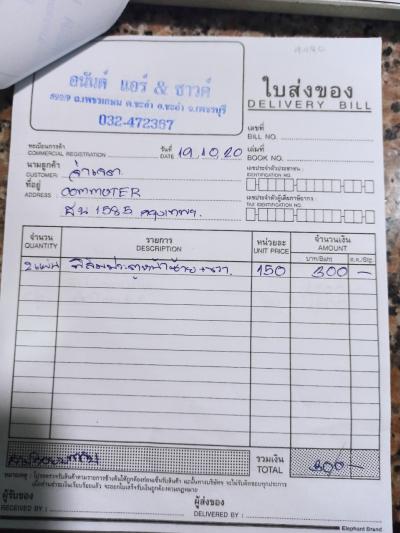 อนันต์ แอร์ & ซาวด์
032-472367
ใบส่งของ
DELIVERY BILL
เลขที่
BILL NO.
ทะเบียนการค้า
COMMERCIAL REGISTRATION
วันที่
DATE 19.10.20
เล่มที่
BOOK NO.
นามลูกค้า
CUSTOMER
เลขประจำตัวประชาชน
IDENTIFICATION NO.
ที่อยู่
ADDRESS COMMUTER
เลขประจำตัวผู้เสียภาษีอากร
TAX IDENTIFICATION NO.
1585 กรุงเทพฯ
จำนวน
QUANTITY
รายการ
DESCRIPTION
หน่วยละ
UNIT PRICE
จำนวนเงิน
AMOUNT
บาท/Baht ส.ต./Stg.
2 แผ่น 150 300 -
สามร้อยบาทถ้วน
รวมเงิน
TOTAL 300 -
ผู้รับของ
RECEIVED BY :
ผู้ส่งของ
DELIVERED BY :
Elephant Brand